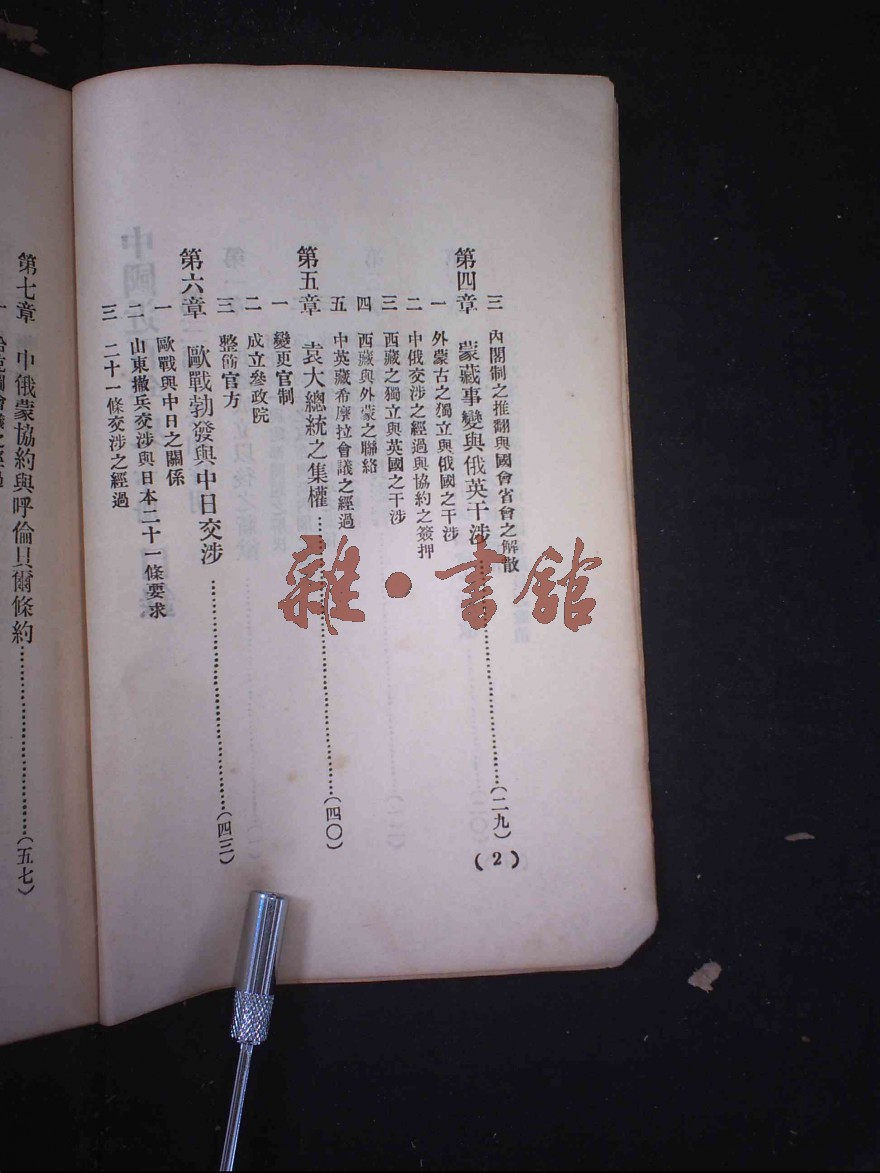 三 內閣制之推翻與國會省會之解散
第四章 蒙藏事變與俄英干涉……………………(二九)
一 外蒙古之獨立與俄國之干涉
二 中俄交涉之經過與協約之簽押
三 西藏之獨立與英國之干涉
四 西藏與外蒙之聯絡
五 中英藏希摩拉會議之經過
第五章 袁大總統之集權……………………(四〇)
一 變更官制
二 成立參政院
三 整飭官方
第六章 歐戰勃發與中日交涉……………………(四三)
一 歐戰與中日之關係
二 山東撤兵交涉與日本二十一條要求
三 二十一條交涉之經過
(2)
第七章 中俄蒙協約與呼倫貝爾條約……………………(五七)
雜·書館